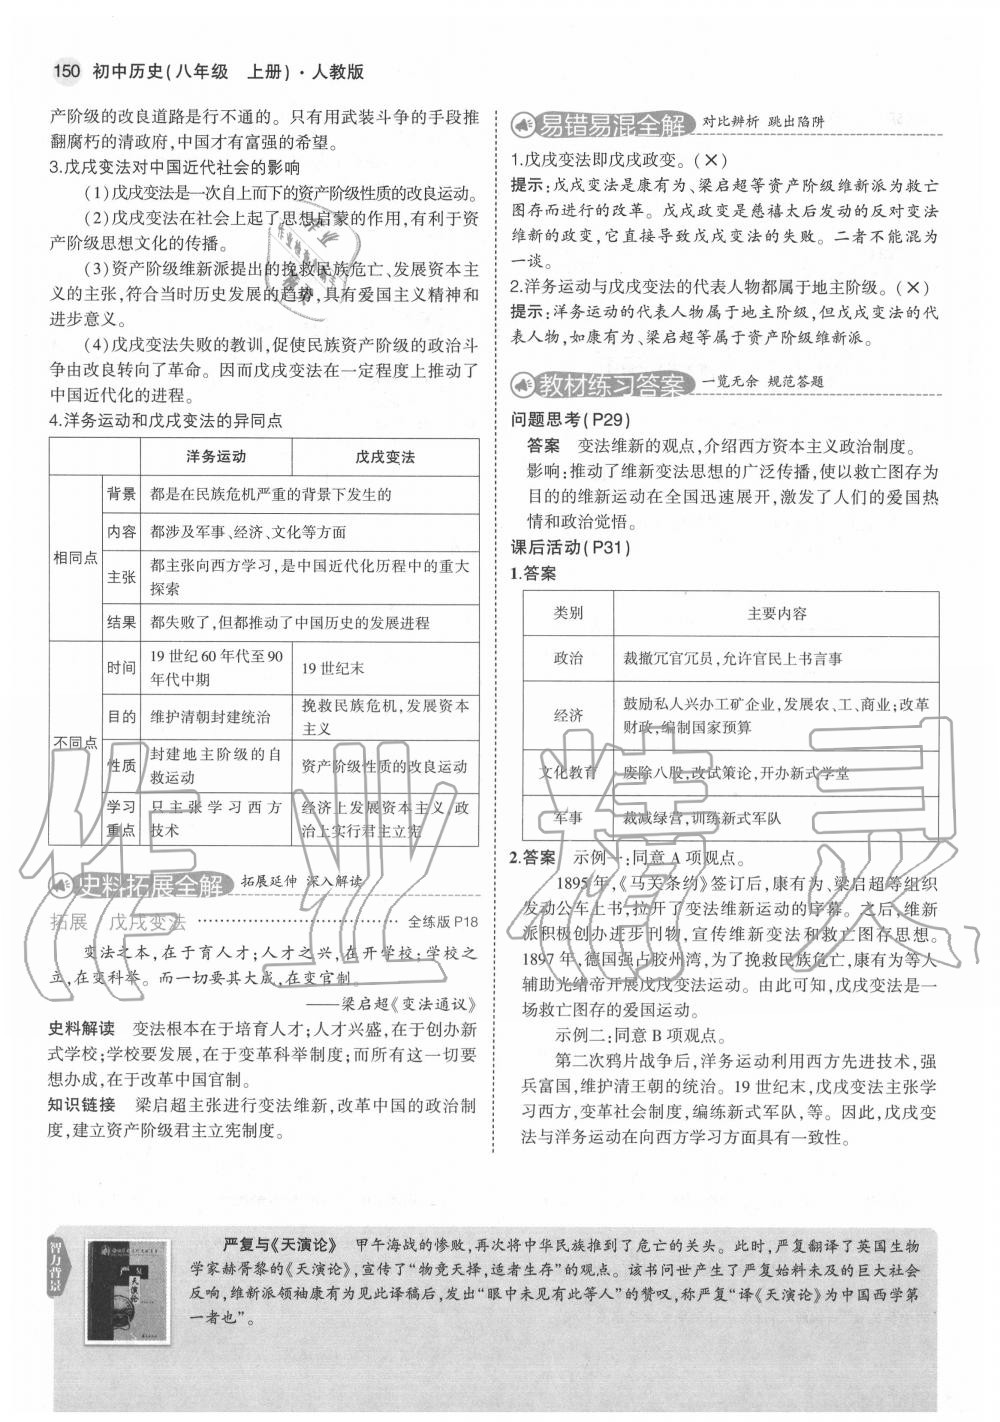 150 初中历史(八年级 上册)·人教版
产阶级的改良道路是行不通的。只有用武装斗争的手段推
翻腐朽的清政府,中国才有富强的希望。
3.戊戌变法对中国近代社会的影响
(1)戊戌变法是一次自上而下的资产阶级性质的改良运动。
(2)戊戌变法在社会上起了思想启蒙的作用,有利于资
产阶级思想文化的传播。
(3)资产阶级维新派提出的挽救民族危亡、发展资本主
义的主张,符合当时历史发展的趋势,具有爱国主义精神和
进步意义。
(4)戊戌变法失败的教训,促使民族资产阶级的政治斗
争由改良转向了革命。因而戊戌变法在一定程度上推动了
中国近代化的进程。
4.洋务运动和戊戌变法的异同点
洋务运动 戊戌变法
相同点
背景 都是在民族危机严重的背景下发生的
内容 都涉及军事、经济、文化等方面
主张 都主张向西方学习,是中国近代化历程中的重大
探索
结果 都失败了,但都推动了中国历史的发展进程
不同点
时间 19世纪60年代至90
年代中期
19世纪末
目的 维护清朝封建统治
挽救民族危机,发展资本
主义
性质 封建地主阶级的自
救运动
资产阶级性质的改良运动
学习
重点
只主张学习西方
技术
经济上发展资本主义,政
治上实行君主立宪
史料拓展全解 拓展延伸 深入解读
拓展 戊戌变法 ………………………… 全练版P18
变法之本,在于育人才;人才之兴,在开学校;学校之
立,在变科举。而一切要其大成,在变官制。
——梁启超《变法通议》
史料解读 变法根本在于培育人才;人才兴盛,在于创办新
式学校;学校要发展,在于变革科举制度;而所有这一切要
想办成,在于改革中国官制。
知识链接 梁启超主张进行变法维新,改革中国的政治制
度,建立资产阶级君主立宪制度。
易错易混全解 对比辨析 跳出陷阱
1.戊戌变法即戊戌政变。(×)
提示:戊戌变法是康有为、梁启超等资产阶级维新派为救亡
图存而进行的改革。戊戌政变是慈禧太后发动的反对变法
维新的政变,它直接导致戊戌变法的失败。二者不能混为
一谈。
2.洋务运动与戊戌变法的代表人物都属于地主阶级。(×)
提示:洋务运动的代表人物属于地主阶级,但戊戌变法的代
表人物,如康有为、梁启超等属于资产阶级维新派。
教材练习答案 一览无余 规范答题
问题思考(P29)
答案 变法维新的观点,介绍西方资本主义政治制度。
影响:推动了维新变法思想的广泛传播,使以救亡图存为
目的的维新运动在全国迅速展开,激发了人们的爱国热
情和政治觉悟。
课后活动(P31)
1.答案
类别 主要内容
政治 裁撤冗官冗员,允许官民上书言事
经济 鼓励私人兴办工矿企业,发展农、工、商业;改革
财政,编制国家预算
文化教育 废除八股,改试策论,开办新式学堂
军事 裁减绿营,训练新式军队
2.答案 示例一:同意A项观点。
1895年,《马关条约》签订后,康有为、梁启超等组织
发动公车上书,拉开了变法维新运动的序幕。之后,维新
派积极创办进步刊物,宣传维新变法和救亡图存思想。
1897年,德国强占胶州湾,为了挽救民族危亡,康有为等人
辅助光绪帝开展戊戌变法运动。由此可知,戊戌变法是一
场救亡图存的爱国运动。
示例二:同意B项观点。
第二次鸦片战争后,洋务运动利用西方先进技术,强
兵富国,维护清王朝的统治。19世纪末,戊戌变法主张学
习西方,变革社会制度,编练新式军队,等。因此,戊戌变
法与洋务运动在向西方学习方面具有一致性。
智力背景
严复与《天演论》 甲午海战的惨败,再次将中华民族推到了危亡的关头。此时,严复翻译了英国生物
学家赫胥黎的《天演论》,宣传了“物竞天择,适者生存”的观点。该书问世产生了严复始料未及的巨大社会
反响,维新派领袖康有为见此译稿后,发出“眼中未见有此等人”的赞叹,称严复“译《天演论》为中国西学第
一者也”。
天演论
作业精灵